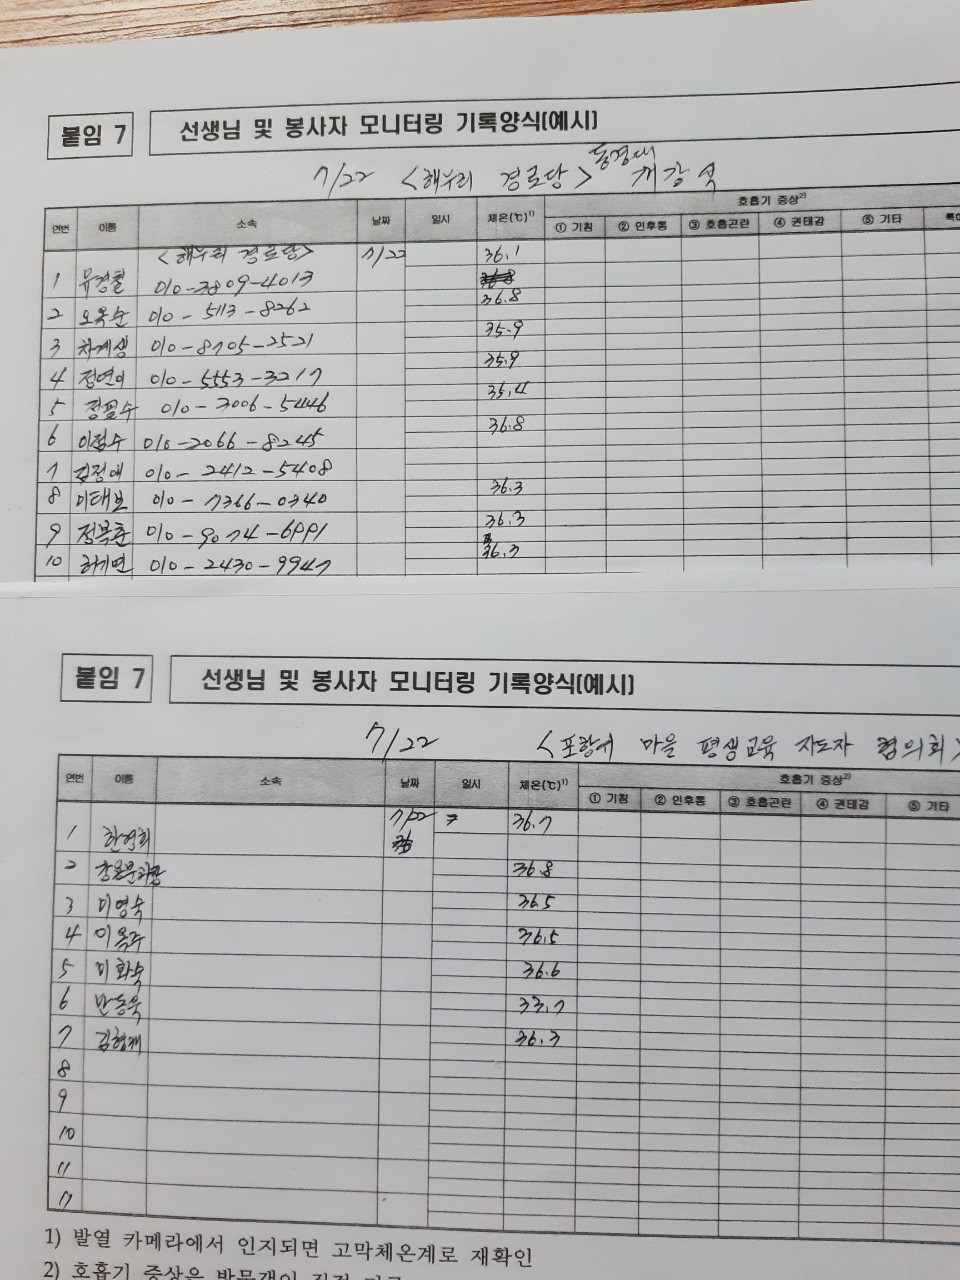 붙임 7 선생님 및 봉사자 모니터링 기록양식(예시)
7/22 <해우리 경로당>
연번 이름 소속 날짜 일시 체온(℃)1) 호흡기 증상2)
① 기침 ② 인후통 ③ 호흡곤란 ④ 권태감 ⑤ 기타
<해우리 경로당> 7/22 36.1
1 010-3809-4013
36.8
2 오옥순 010-5113-8262
35.9
3 차계생 010-8705-2521
35.9
4 정연이 010-5553-3217
35.4
5 정필수 010-3006-5446
36.8
6 이점수 010-2066-8245
7 김정애 010-2412-5408
36.3
8 이태보 010-7366-0340
36.3
9 정복춘 010-9074-6991
36.7
10 010-2430-9947
붙임 7 선생님 및 봉사자 모니터링 기록양식(예시)
7/22 <포항시 마을 평생교육 지도자 협의회>
연번 이름 소속 날짜 일시 체온(℃)1) 호흡기 증상2)
① 기침 ② 인후통 ③ 호흡곤란 ④ 권태감 ⑤ 기타
1 7/22 36.7
2 36.8
3 이영숙 36.5
4 이옥주 36.5
5 이화숙 36.6
6 반동욱 33.7
7 36.3
8
9
10
11
1) 발열 카메라에서 인지되면 고막체온계로 재확인
2) 호흡기 증상은